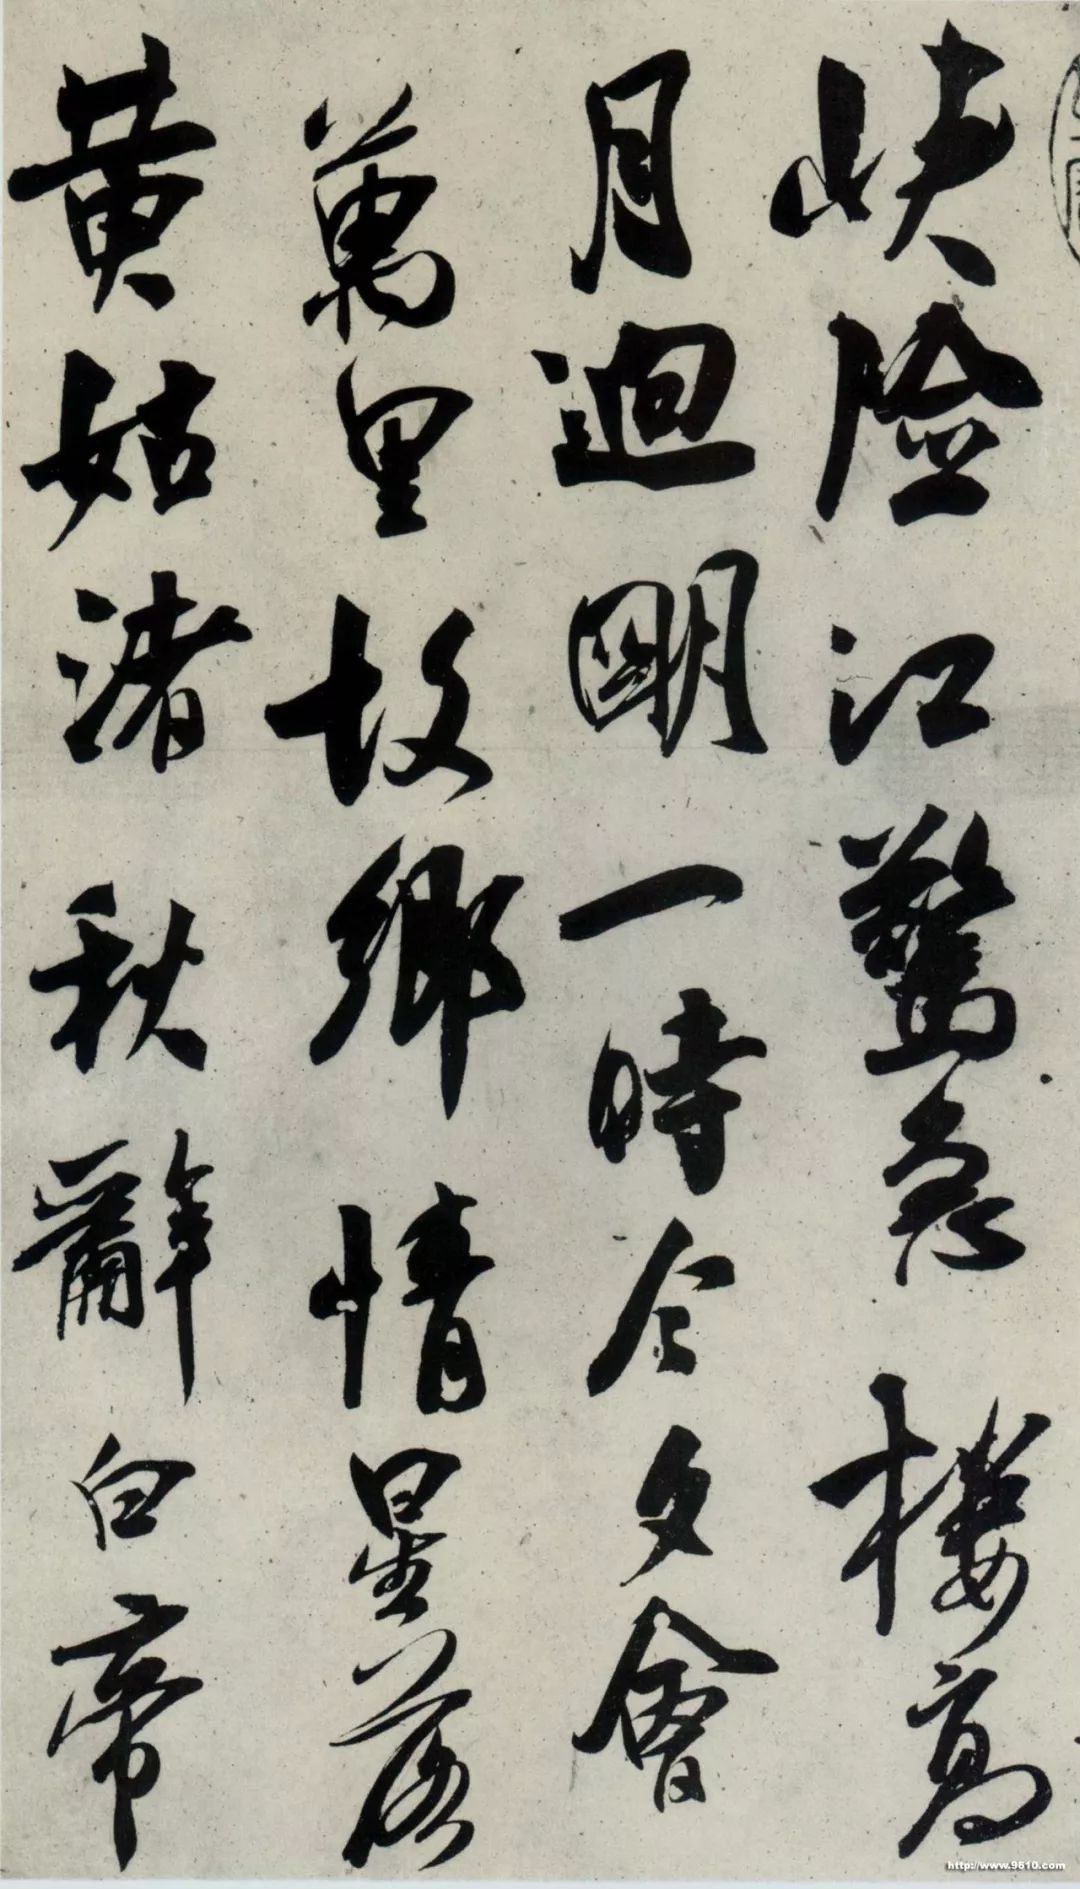 峽險江驚急樓高
月逈朙一時今夕會
萬里故鄉情星落
黃姑渚秋辭白帝
http://www.9610.com